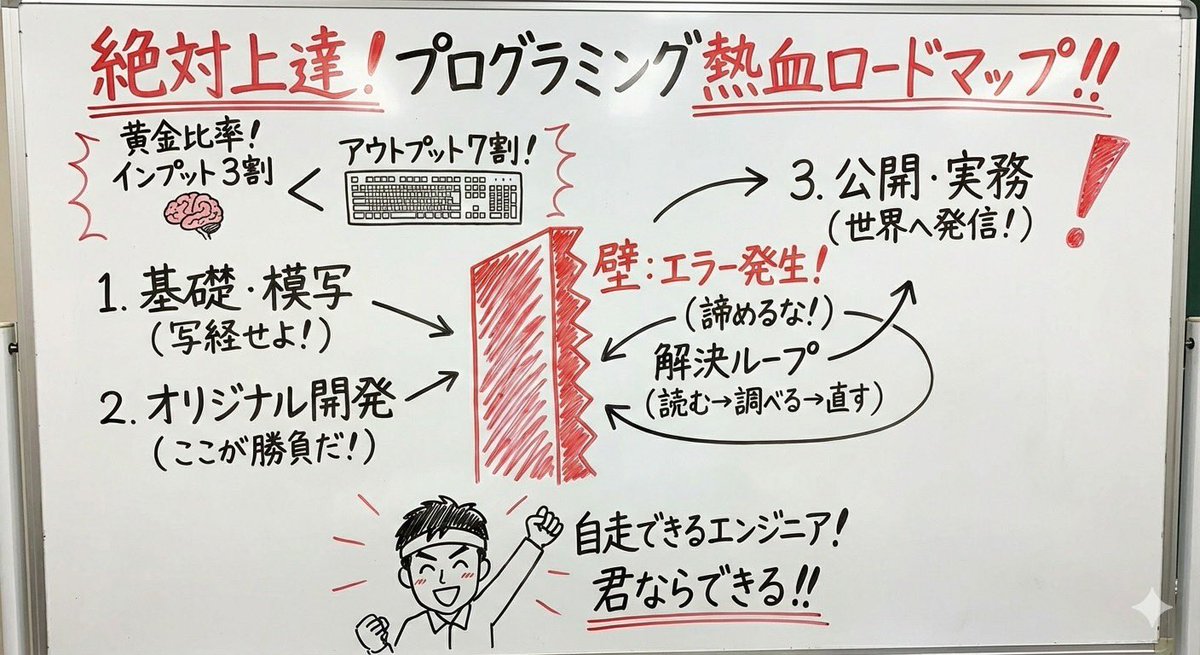 絶対上達！プログラミング熱血ロードマップ!!
黄金比率！
インプット3割
<
アウトプット7割！
1. 基礎・模写
(写経せよ！)
2. オリジナル開発
(ここが勝負だ！)
壁：エラー発生！
(諦めるな！)
解決ループ
(読む→調べる→直す)
3. 公開・実務
(世界へ発信！)
！
自走できるエンジニア！
君ならできる!!